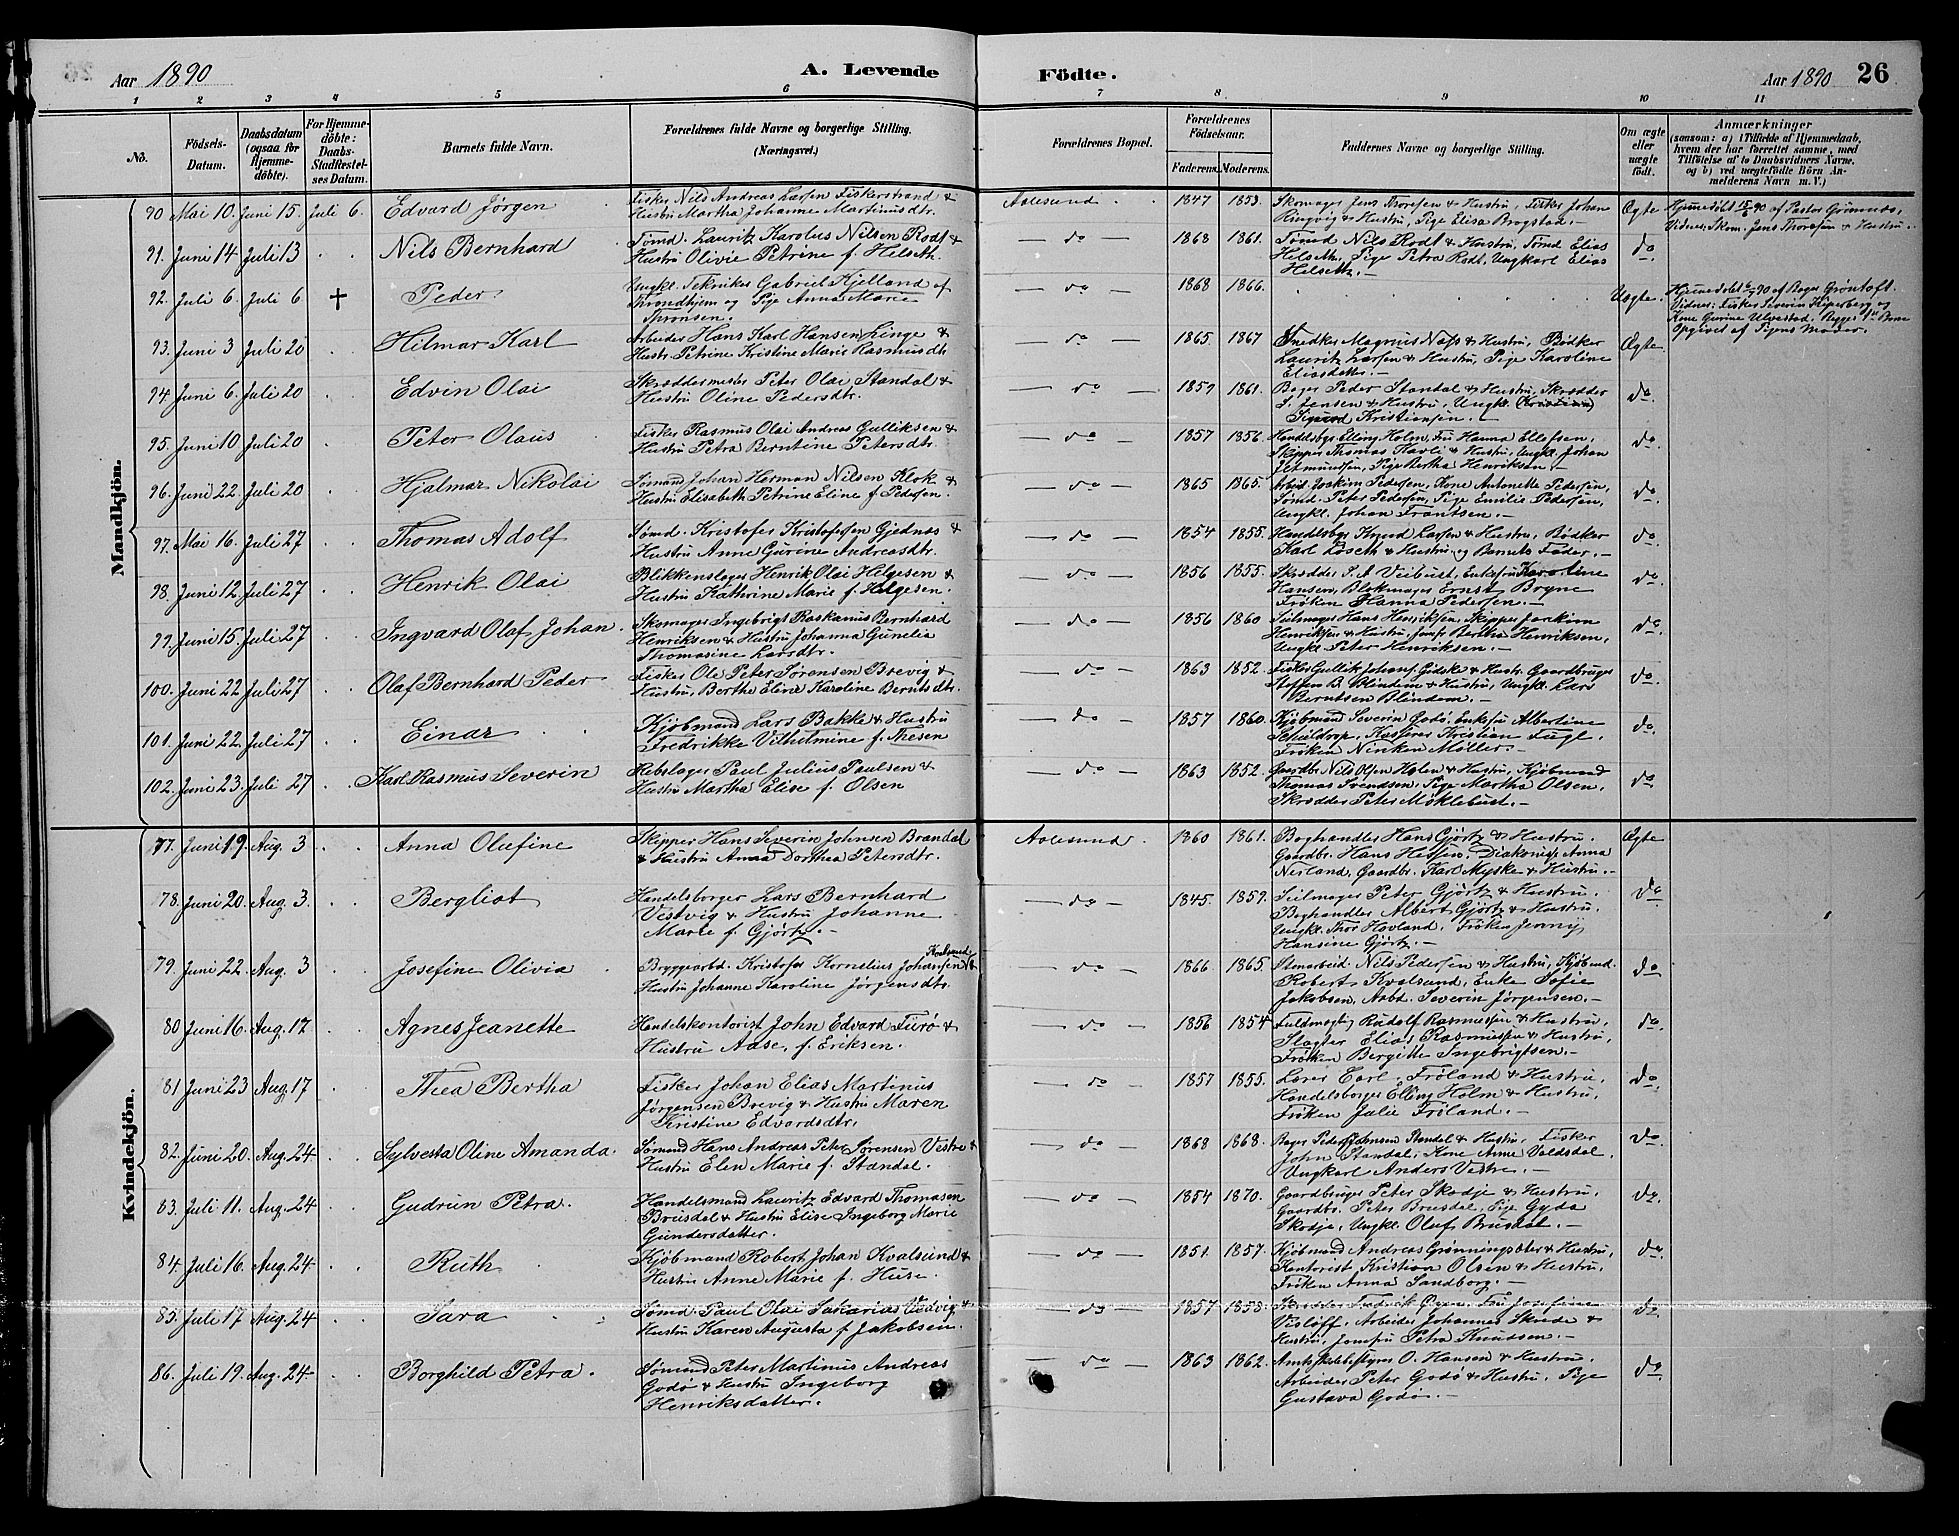 Aar 1890 A. Levende Födte. Aar 1890 26
1 2 3 4 5 6 7 8 9 10 11
No. Födsels-Datum. Daabsdatum (ogsaa for Hjemme-döbte). For Hjemme-döbte: Daabs-Stadfæstel-ses Datum. Barnets fulde Navn. Forældrenes fulde Navne og borgerlige Stilling. (Næringsvei.) Forældrenes Bopæl. Forældrenes Födselsaar. Faderens. Moderens. Faddernes Navne og borgerlige Stilling. Om ægte eller uægte födt. Anmærkninger (saasom: a) i Tilfælde af Hjemmedaab, hvem der har forrettet samme, med Tilföielse af to Daabsvidners Navne. og b) ved uægtefödte Börn An-melderens Navn m. V.)
Mandkjön.
90 Mai 10. Juni 15. Juli 6. Edvard Jörgen Fisker Nils Andreas Larsen Fiskerstrand &
Hustru Martha Johanne Martinusdtr. Aalesund 1847 1853. Skomager Jens Thoresen & Hustru, Fisker Johan
Ringvig & Hustru, Pige Elisa Brogstad. Ægte Hjemmedöbt 15/6 90 af Pastor Grimnæs,
Vidner, Skom. Jens Thoresen & Hustru.
91. Juni 14 Juli 13 Nils Bernhard Tömd. Lauritz Karolus Nilsen Rodt &
Hustru Olivie Petrine f. Helseth. do 1868 1861. Tömd Nils Rodt & Hustru, Tömd Elias
Helseth, Pige Petra Rodt, Ungkarl Elias
Helseth. do
92. Juli 6. Juli 6 † Peder Ungkl. Tekniker Gabriel Kjelland af
Throndhjem og Pige Anna Marie
Thronsen. do 1868 1866. Uægte. Hjemmedöbt 6/7 90 af Bager Gröntoft.
Vidner: Fisker Severin Kiperberg og
Kone Gurine Ulvestad. Begges 1ste Barn
Opgivet af Pigens Moder.
93. Juni 3 Juli 20 Hilmar Karl Arbeider Hans Karl Hansen Linge &
Hustr. Petrine Kristine Marie Rasmusdtr. do 1865 1867 Snedker Magnus Næss & Hustru, Bödker
Lauritz Larsen & Hustru, Pige Karoline
Eliasdatter. Ægte
94. Juni 6. Juli 20 Edvin Olai Skræddermester Peter Olai Standal &
Hustru Oline Pedersdtr. do 1859 1861. Bager Peder Standal & Hustru, Skrædder
S. Jensen & Hustru, Ungkl. (Kristian)
Sigurd Kristiansen. do
95. Juni 10. Juli 20 Peter Olaus Fisker Rasmus Olai Andreas Gulliksen &
Hustru Petra Berntine Petersdtr. do 1857 1856. Handelsbgr. Elling Holm, Fru Hanna Ellefsen,
Skipper Thomas Havli & Hustru, Ungkl. Johan
Pige Bertha Henriksen. do
96. Juni 22 Juli 20 Hjalmar Nikolai Sömand Johan Herman Nilsen Klok &
Hustru Elisabeth Petrine Eline f. Pedersen. do 1865 1865. Arbeid. Joakim Pedersen, Kone Antonette Pedersen,
Sömd. Peter Pedersen, Pige Emilie Pedersen,
Ungkl. Johan Frantsen. do
97. Mai 16. Juli 27 Thomas Adolf Sömd. Kristofer Kristofersen Gjednæs &
Hustru Anne Gurine Andreasdtr. do 1854 1855. Handelsbgr Knud Larsen & Hustru, Bödker
Karl Löseth & Hustru og Barnets Fader. do
98. Juni 12. Juli 27 Henrik Olai Blikkenslager Henrik Olai Helgesen &
Hustru Kathrine Marie f. Helgesen. do 1856 1855. Skrædder S. A. Veibust, Enkefru Karoline
Hansen, Blikmager Ernst Bryne
Fröken Hanna Pedersen. do
99. Juni 15. Juli 27 Ingvard Olaf Johan. Skomager Ingebrigt Raskanus Bernhard
Henriksen & Hustru Johanna Gunelia
Thomasine Larsdtr. do 1856 1860 Seilmager Hans Henriksen, Skipper Joakim
Henriksen & Hustru, Jomfr Bertha Henriksen,
Ungkl Peter Henriksen. do
100. Juni 22 Juli 27 Olaf Bernhard Peder Fisker Ole Peter Sörensen Brevig &
Hustru, Berthe Eline Karoline Berntsdtr. do 1863 1852. Fisker Gullik Johans. Giske & Hustr. Gaardbruger
Steffen B. Blindem & Hustru, Ungkl. Lars
Berntsen Blindem. do
101. Juni 22. Juli 27. Einar Kjöbmand Lars Bakke & Hustru
Fredrikke Vilhelmine f. Thesen do 1857 1860. Kjöbmand Severin Godö, Enkefru Albertine
Schieldrop, Kasserer Kristian Fugl.
Fröken Ninken Möller. do
102. Juni 23. Juli 27 Karl Rasmus Severin Rebslager Paul Julius Paulsen &
Hustru Martha Elise f. Olsen do 1863 1852. Gaardbr. Nils Olsen Holen & Hustru, Kjöbmand
Thomas Svendsen, Pige Martha Olsen,
Skrædder Peter Möklebust. do
Kvindekjön.
77. Juni 19. Aug. 3 Anna Olufine Skipper Hans Severin Johnsen Brandal
& Hustru Anna Dorthea Petersdtr. Aalesund. 1860 1861. Boghandler Hans Gjörtz & Hustru.
Gaardbr. Hans Hessen, Diakonisse Anna
Nerland, Gaardbr. Karl Myske & Hustru. Ægte
78. Juni 20. Aug. 3. Bergliot Handelsborger Lars Bernhard
Vestvig & Hustru Johanne
Marie f. Gjörtz. do 1845. 1859. Seilmager Peter Gjörtz & Hustru.
Boghandler Albert Gjörtz & Hustru.
Ungkl. Thor Hovland. Fröken Jenny
Hansine Gjörtz. do
79. Juni 22. Aug. 3 Josefine Olivia Bryggearbd. Kristofer Kornelius Johansen Kvalsund &
Hustru Johanne Karoline Jörgensdtr. do 1866 1865. Stenarbeid. Nils Pedersen & Hustru, Kjöbmd.
Robert Kvalsund, Enke Sofie
Jakobsen, Arbd. Severin Jörgensen. do
80 Juni 16. Aug. 17 Agnes Jeanette Handelskontorist John Edvard Furö &
Hustru Aase, f. Eriksen. do 1856 1854 Fuldmægtig Rudolf Rasmussen & Hustru,
Slagter Elias Rasmussen & Hustru,
Fröken Bergitte Ingebrigtsen. do
81 Juni 23 Aug. 17 Thea Bertha Fisker Johan Elias Martinus
Jörgensen Brevig & Hustru Maren
Kristine Edvardsdtr. do 1857 1855. Lærer Carl Fröland & Hustru,
Handelsborger Elling Holm & Hustru,
Fröken Julie Fröland. do
82. Juni 20. Aug. 24. Sylvesta Oline Amanda. Sömand Hans Andreas Peter Sörensen Vestre &
Hustru Elen Marie f. Standal. do 1868 1868. Bager Peder Jensen Standal & Hustru, Fisker
John Standal, Kone Anne Valdsdal,
Ungkarl Anders Vestre. do
83. Juli 11. Aug. 24 Gudrun Petra. Handelsmand Lauritz Edvard Thomasen
Brusdal & Hustru Elise Ingeborg Marie
Gundersdatter. do 1854 1870. Gaardbruger Peter Skodje & Hustru,
Gaardbr. Peter Brusdal, Pige Gyda
Skodje, Ungkl. Oluf Brusdal. do
84. Juli 16. Aug. 24 Ruth Kjöbmand Robert Johan Kvalsund &
Hustru Anne Marie f. Huse. do 1851. 1857. Kjöbmand Andreas Grönningsæter & Hustru,
Kontorist Kristian Olsen & Hustru,
Fröken Anna Sandborg. do
85. Juli 17 Aug. 24 Sara Sömd. Paul Olai Sakarias Vedvig &
Hustru Karen Augusta f. Jakobsen. do 1857 1858. Skrædder Fredrik Öyen, Fru Josefine
Vislöff, Arbeider Johannes Skude &
Hustru, Jomfru Petra Knudsen. do
86. Juli 19. Aug. 24 Borghild Petra. Sömand Peter Martinus Andreas
Godö & Hustru Ingeborg
Henriksdatter. do 1863 1862. Amtsskolebestyrer O. Hansen & Hustru.
Arbeider Peter Godö & Hustru, Pige
Gustava Godö. do